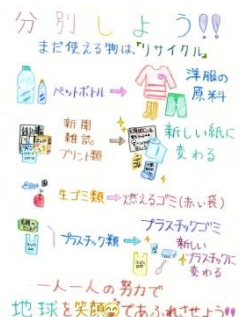 分別しよう!!
まだ使える物は、『リサイクル』
ペットボトル→洋服の原料
新聞
雑誌
プリント類
新しい紙に
変わる
生ゴミ類→燃えるゴミ(赤い袋)
プラスチック類→プラスチックゴミ
新しい
プラスチックに
変わる
一人一人の努力で
地球を笑顔であふれさせよう!!